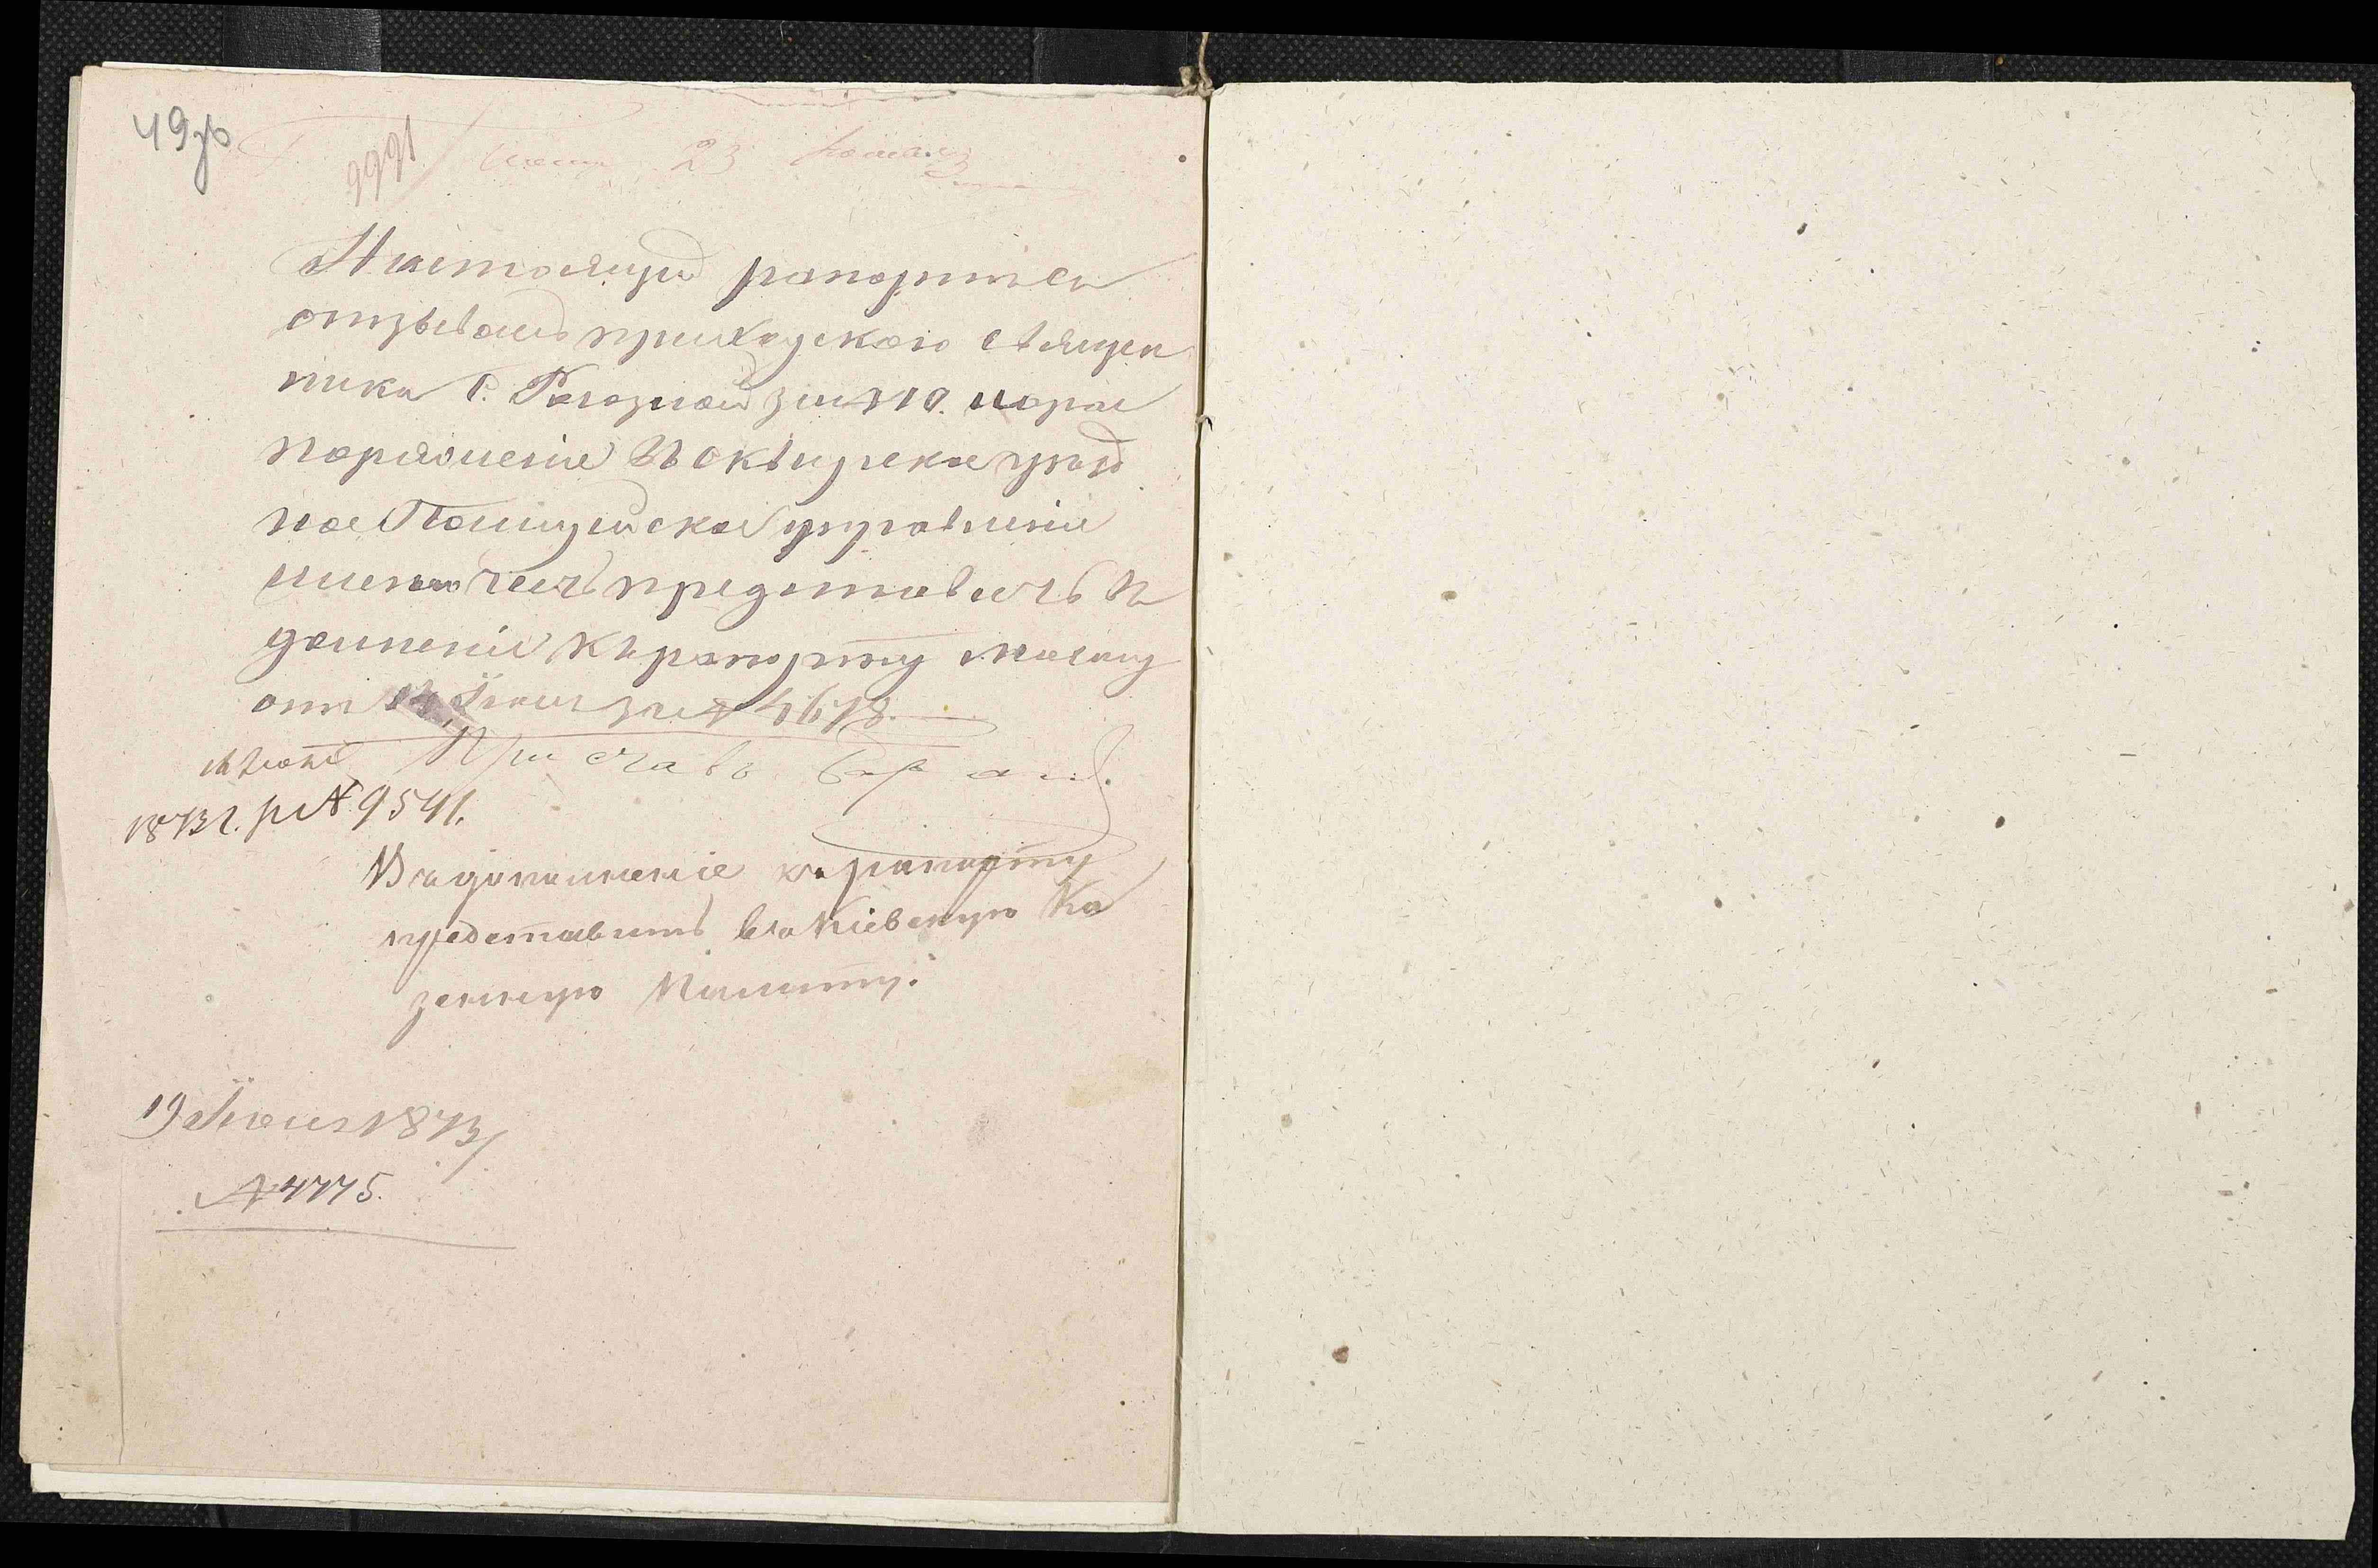 49зв
9991 23
Настоящій рапортъ съ
отзывомъ приходскаго Священ
ника С. за № 10. на рас
поряженіе Въ Сквирское уѣзд
ное Полицейское управленіе
имѣю честь представить въ
дополненіе къ рапорту моему
отъ 14 Іюня за № 4678.
Приставъ
18 Іюня
1873 г. № 9541.
Въ дополненіе къ рапорту
представить въ Кіевскую Ка
зенную Палату.
19 Іюня 1873
№ 4775.